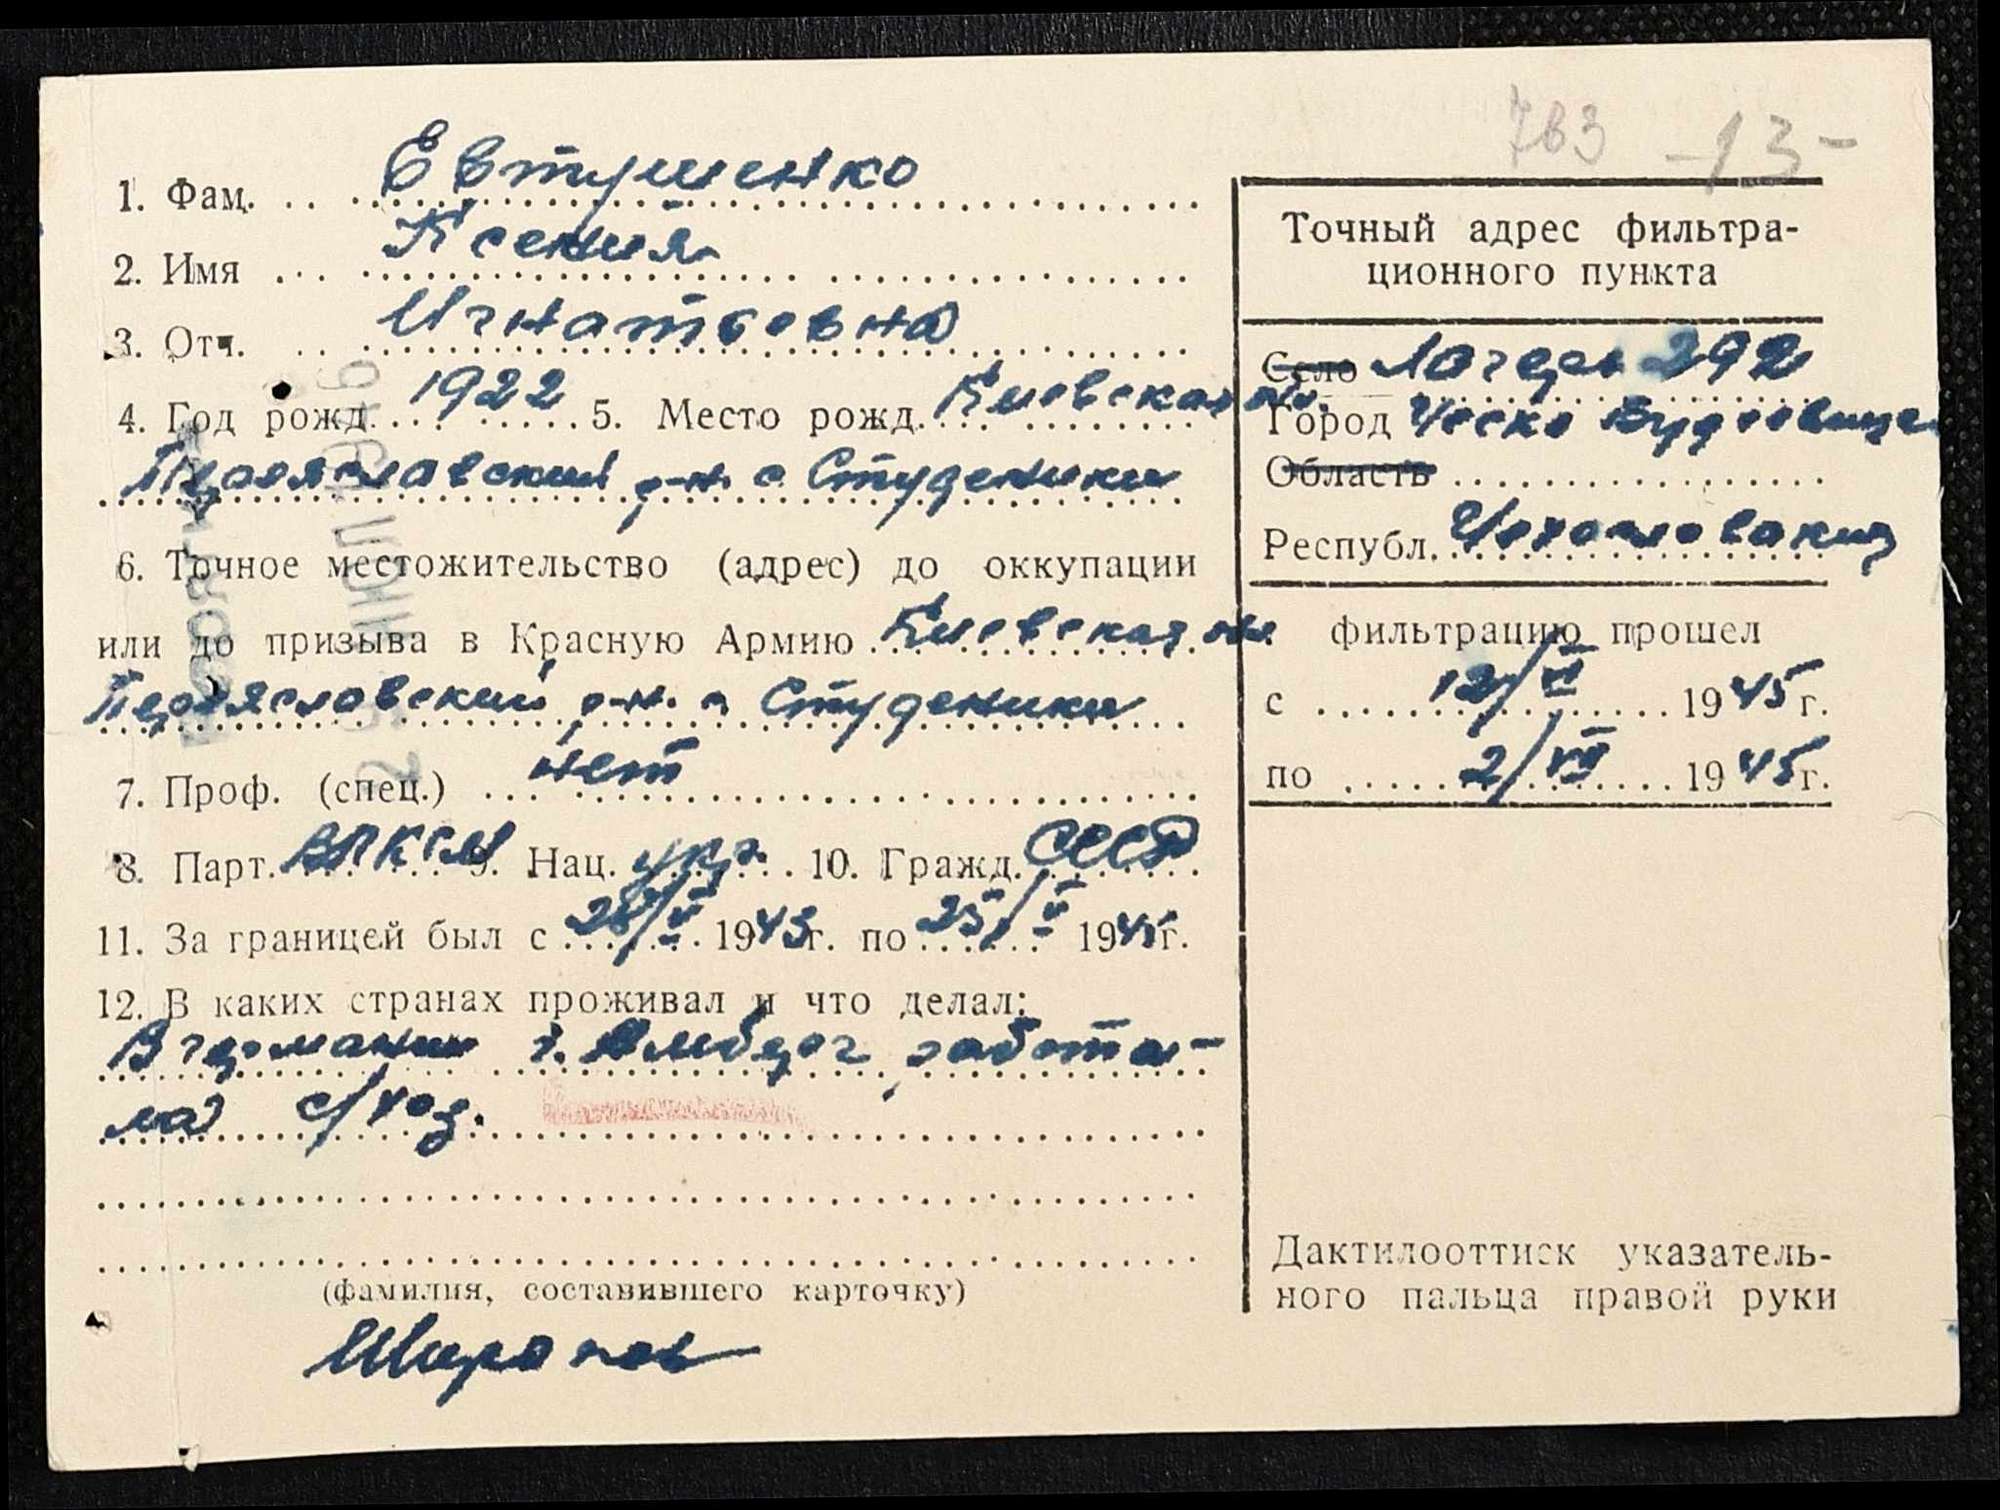 763 -13-
1. Фам. Евтушенко
2. Имя Ксения
3. Отч. Игнатовна
4. Год рожд. 1922 5. Место рожд. Киевская обл.
Переяславский р-н. с Студеники
6. Точное местожительство (адрес) до оккупации
или до призыва в Красную Армию Киевская обл
Переяславский р-н. с Студеники
7. Проф. (спец.) нет
8. Парт. ВЛКСМ 9. Нац. укр. 10. Гражд. СССР
11. За границей был с 28/V 1943г. по 25/V 1945г.
12. В каких странах проживал и что делал:
В германии г. Амберг работа-
ла с/хоз.
(фамилия, составившего карточку)
Точный адрес фильтра-
ционного пункта
Село Лагерь 292
Город Ческо Будеовице
Область
Республ. Чехословакия
фильтрацию прошел
с 12/VI 1945г.
по 2/VII 1945г.
Дактилооттиск указатель-
ного пальца правой руки